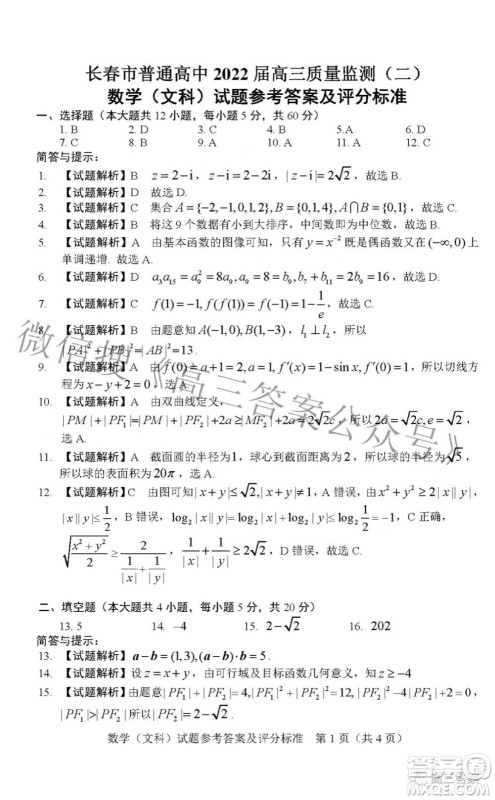 长春市普通高中 2022 届高三质量监测（二）
数学（文科）试题参考答案及评分标准
一、选择题（本大题共 12 小题，每小题 5 分，共 60 分）
1. B 2. D 3. C 4. B 5. A 6. D
7. C 8. B 9. B 10. A 11. A 12. C
简答与提示：
1. 【试题解析】B z=2-i, z-i=2-2i, |z-i|=2√2，故选 B.
2. 【试题解析】D 故选 D.
3. 【试题解析】C 集合 A={-2,-1,0,1,2}, B={0,1,4}, A∩B={0,1}，故选 C.
4. 【试题解析】B 将这 9 个数据有小到大排序，中间数即为中位数，故选 B.
5. 【试题解析】A 由基本函数的图像可知，只有 y=x⁻² 既是偶函数，又在 (-∞,0) 上
单调递增. 故选 A.
6. 【试题解析】D a₃a₁₅=a₉²=8a₉, a₉=8=b₉, b₇+b₁₁=2b₉=16，故选 D.
7. 【试题解析】C f(1)=-1, f(f(1))=f(-1)=1-1/e，故选 C.
8. 【试题解析】B 由题意知 A(-1,0), B(1,-3)，l₁⊥l₂，所以
|PA|²+|PB|²=|AB|²=13.
9. 【试题解析】B 由 f(0)=2, f'(x)=1-sin x, f'(0)=1，所以切线方
程为 x-y+2=0，选 A.
10. 【试题解析】A 由双曲线定义，
|PM|+|PF₁|=|PM|+|PF₂|+2a≥|MF₂|+2a=2√2c，所以 2a=√2c, e=√2，
故选 A.
11. 【试题解析】A 截面圆的半径为1，球心到截面圆的距离为2，所以球的半径为√5，
所以球的表面积为20π，选 A.
12. 【试题解析】C 由图可知 |x+y|≤√2，A 错误，由 x²+y²≥2|x||y|,
|x||y|≤1/2，B 错误，log₂|x|+log₂|y|=log₂|x||y|≤log₂ 1/2=-1，C 正确，
√((x²+y²)/2)≥2/(1/|x|+1/|y|)，1/|x|+1/|y|≥2√2，D 错误. 故选 C.
二、填空题（本大题共 4 小题，每小题 5 分，共 20 分）
13. 5 14. -4 15. 2-√2 16. 202
简答与提示：
13. 【试题解析】a-b=(1,3),(a-b)·b=5.
14. 【试题解析】设 z=x+y，由可行域及目标函数几何意义可知，z≥-4
15. 【试题解析】由题意 |PF₁|+|PF₂|=4,|PF₁|²+|PF₂|²=12，|PF₂|²-4|PF₂|+2=0，
|PF₁|>|PF₂| 所以 |PF₂|=2-√2.
数学（文科）试题参考答案及评分标准 第 1 页（共 4 页）
微信搜《高三答案公众号》